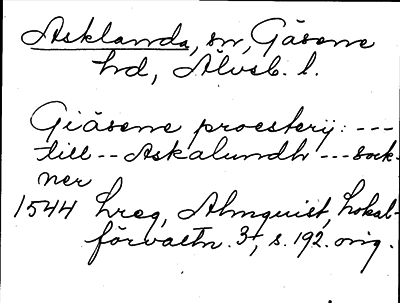 Asklanda, sn, Gäsene
hd, Älvsb. l.
Giäsene proesterij: ---
till -- Askalundh --- sock-
ner
1544 hreg, Almquist, Lokal-
förvaltn. 3, s. 192. orig.